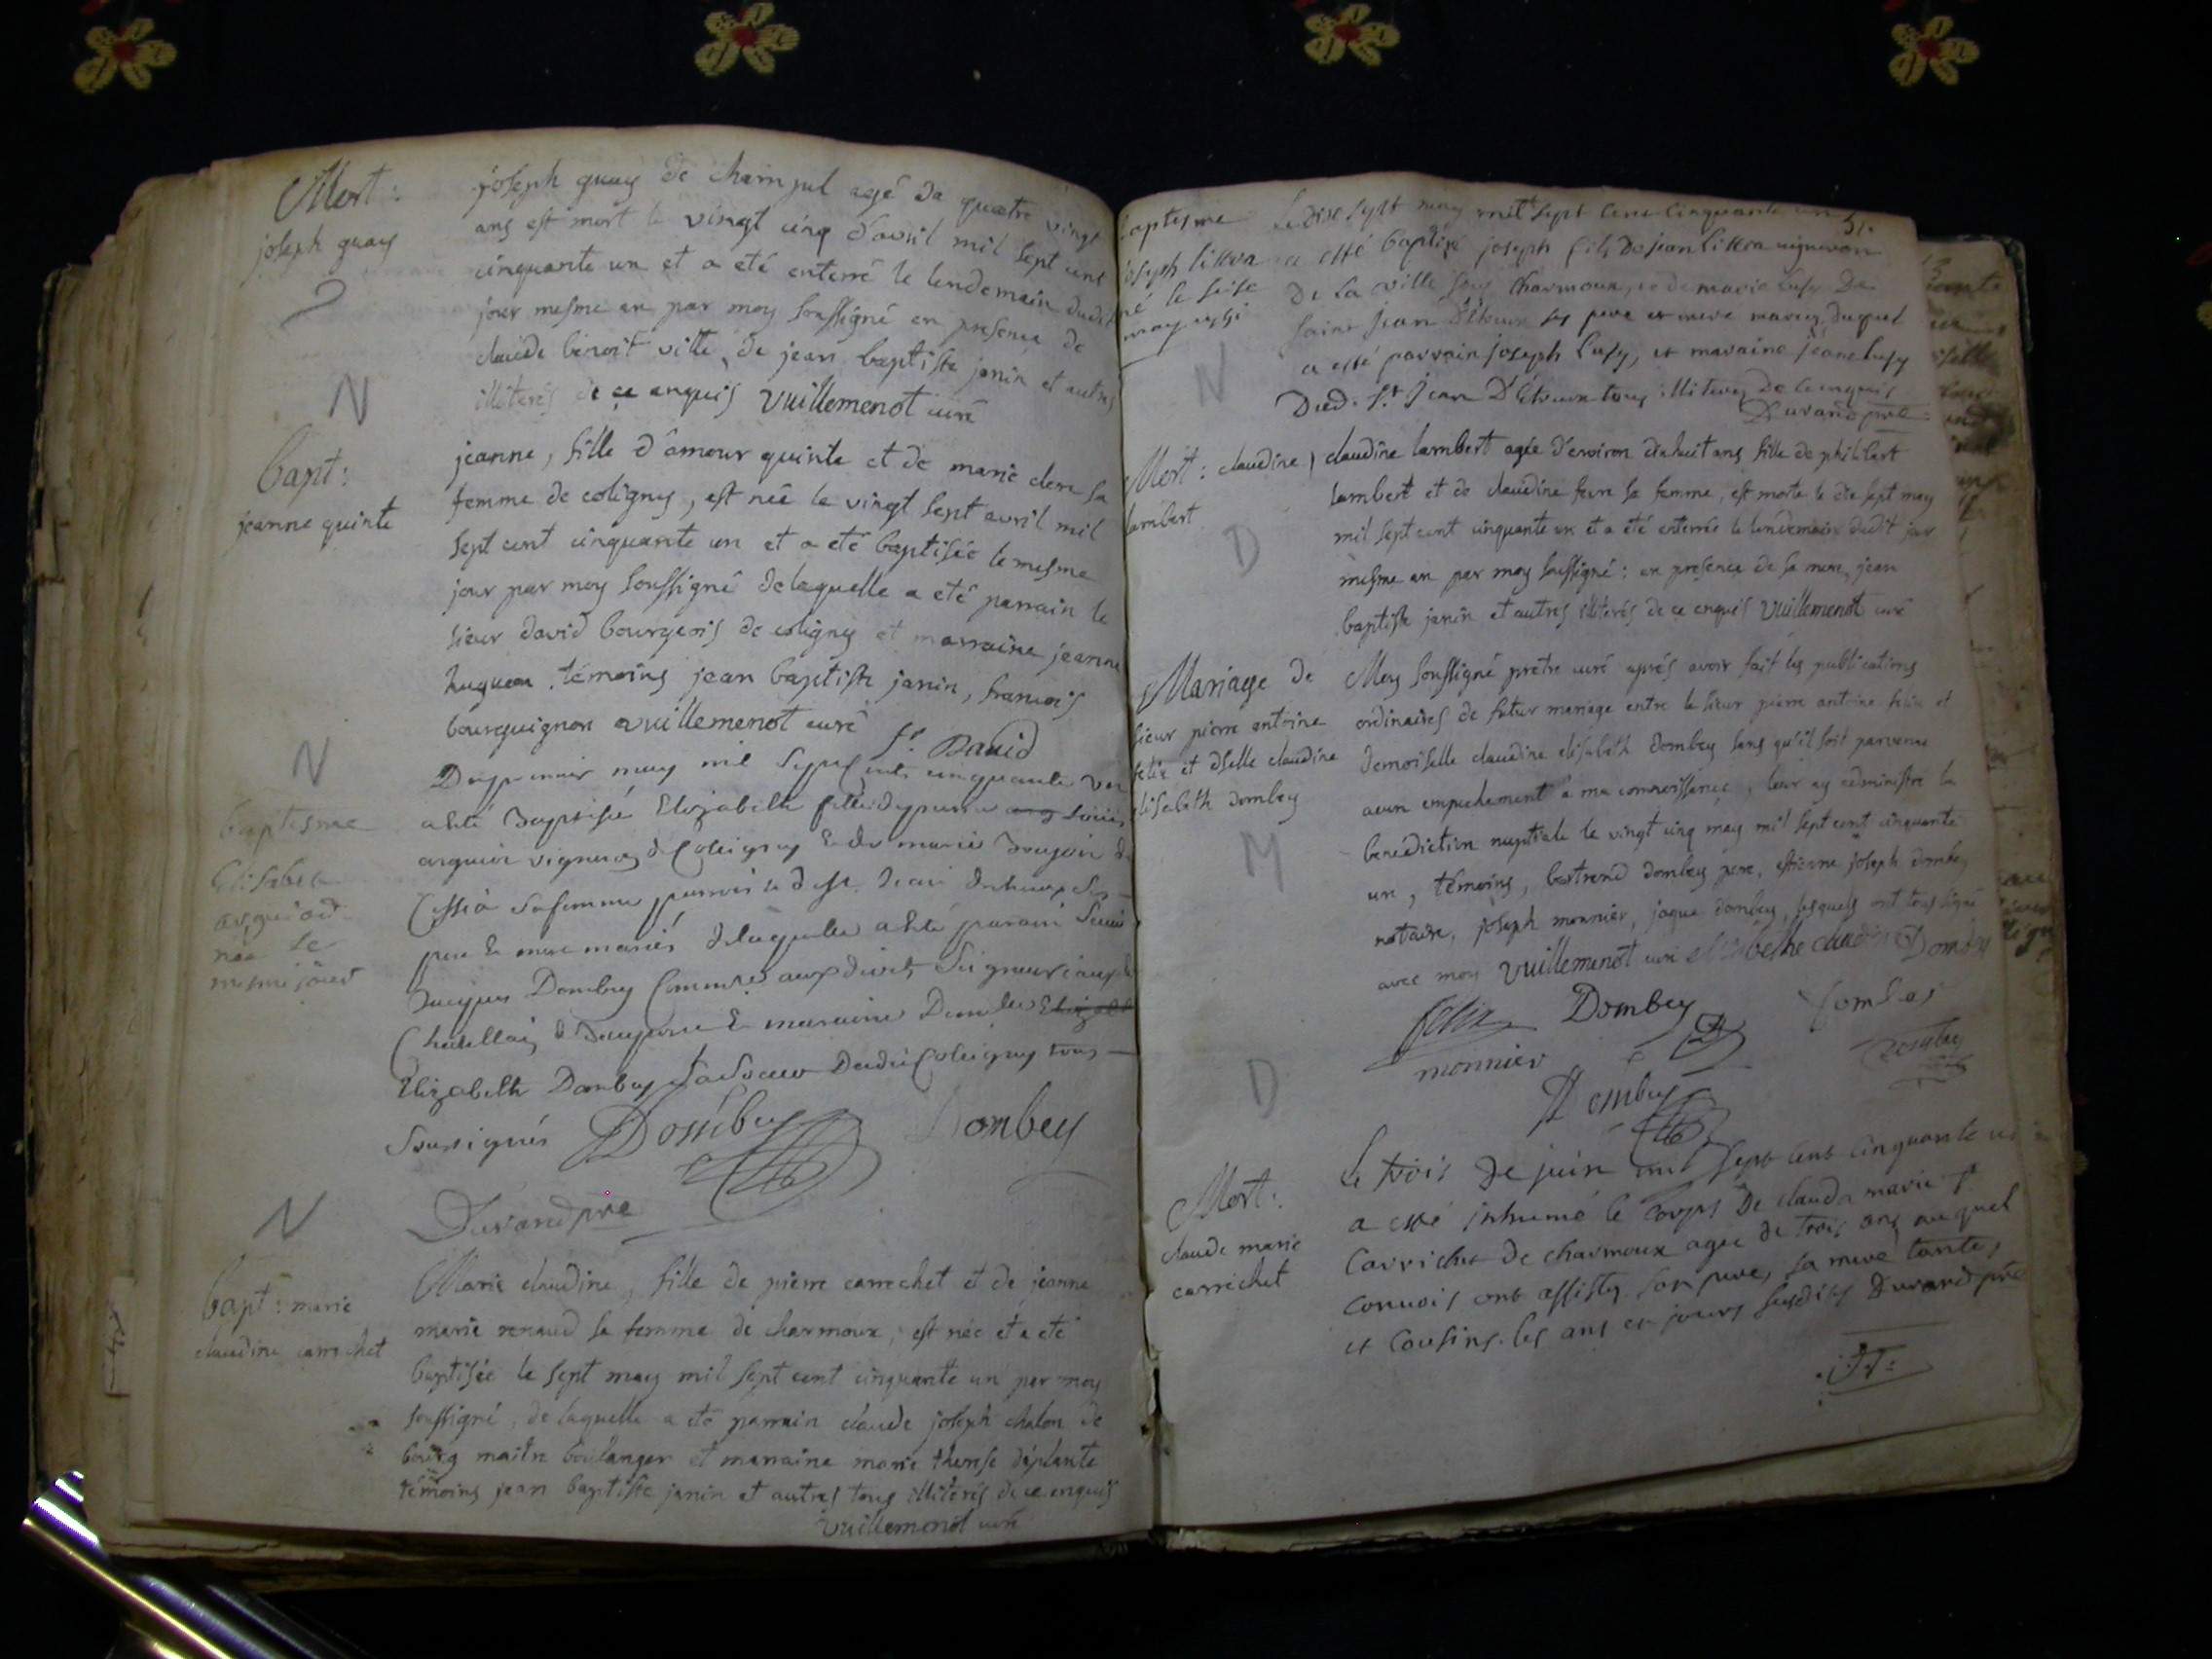 Mort :
joseph guay
joseph guay de champul agé de quatre vingt
ans est mort le vingt cinq d'avril mil sept cent
cinquante un et a eté enterré le lendemain dudit
jour mesme an par moy soussigné en presence de
claude benoit ville, de jean baptiste janin et autres
illiterés de ce enquis vuillemenot curé
N
bapt :
jeanne quinte
jeanne, fille d'amour quinte et de marie clere sa
femme de coligny, est née le vingt sept avril mil
sept cent cinquante un et a eté baptisée le mesme
jour par moy soussigné de laquelle a eté parrain le
sieur david bourgeois de coligny et marraine jeanne
huguen . témoins jean baptiste janin, francois
bourguignon vuillemenot curé
St. David
N
baptesme
Elisabet
arguiod
née le
mesme jour
Du premier may mil sept cents cinquante un
a esté baptisée Elizabeth fille de pierre
vigneron de Coligny & de marie
sa femme paroisse de st. Jean
pere & mere mariés de laquelle a esté parain
Jacques Dombey Commre aux droits Seigneuriaux
& maraine
Elizabeth Dombey sa soeur dudit Coligny tous
soussignés Dombey Dombey
Durand pre
N
bapt : marie
claudine carrichet
Marie claudine, fille de pierre carrechet et de jeanne
marie renaud sa femme de charmoux, est née et a eté
baptisée le sept may mil sept cent cinquante un par moy
soussigné, de laquelle a eté parrain claude joseph chalon de
bourg maitre boulanger et marraine marie therese déplante
témoins jean baptiste janin et autres tous illiterés de ce enquis
vuillemenot curé
51.
baptesme
joseph
né le seise
may 1751
Le dise sept may mil sept cent cinquante un
a esté baptizé joseph fils de jean vigneron
de la ville sous Charmoux, et de marie Lusy de
saint jean d'Etreux ses pere et mere mariez, duquel
a esté parrain joseph Lusy, et maraine jeane Lusy
dud. St. Jean D'Etreux tous illiterez de ce enquis
Durand pre
N
Mort : claudine
lambert
claudine lambert agée d'environ dix huit ans fille de philibert
lambert et de claudine fevre sa femme, est morte le dix sept may
mil sept cent cinquante un et a eté enterrée le lendemain dudit jour
mesme an par moy soussigné : en presence de sa mere, jean
baptiste janin et autres illiterés de ce enquis vuillemenot curé
D
Mariage de
sieur pierre antoine
felix et dselle claudine
elisabeth dombey
Moy soussigné pretre curé aprés avoir fait les publications
ordinaires de futur mariage entre le sieur pierre antoine felix et
demoiselle claudine elisabeth dombey sans qu'il soit parvenu
aucun empechement a ma connoissance, leur ay administré la
benediction nuptiale le vingt cinq may mil sept cent cinquante
un, témoins, bertrand dombey pere, estienne joseph dombey
notaire, joseph monnier, jaque dombey, lesquels ont tous signé
avec moy vuillemenot curé claudine Dombey
M
felix Dombey
monnier
Dombey
Dombey
D
Mort :
claude marie
carrichet
Le trois de juin mil sept cent cinquante un
a esté inhumé le corps de claude marie
Carrichet de charmoux agée de trois ans auquel
convois ont assistez son pere, sa mere tante,
et cousins. les ans et jours susdits Durand pre